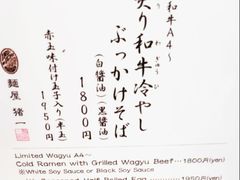 和牛A4〜
炙り和牛冷やし
ぶっかけそば
（黒醤油）
（白醤油）
1800円
赤玉味付け玉子入り（半玉）
1950円
麺屋 猪一
Limited Wagyu A4~
Cold Ramen with Grilled Wagyu Beef…1800円(yen)
※White Soy Sauce or Black Soy Sauce
Half Boiled Egg
1950円(yen)